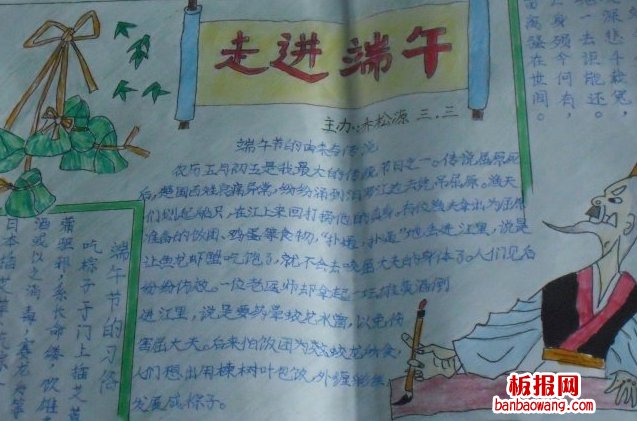 走进端午
主办:赤松源 三.三
端午节的由来与传说
农历五月初五是我最大的传统节日之一。传说屈原死
后,楚国百姓哀痛异常,纷纷涌到汨罗江边去凭吊屈原。渔夫
们划起船只,在江上来回打捞他的真身。有位渔夫拿出为屈原
准备的饭团、鸡蛋等食物,“扑通、扑通”地丢进江里,说是
让鱼龙虾蟹吃饱了,就不会去咬屈大夫的身体了。人们见后
纷纷仿效。一位老医师却拿起一坛雄黄酒倒
进江里,说是要药晕蛟龙水兽,以免伤
害屈大夫。后来怕饭团为蛟龙所食,
人们想出用楝树叶包饭,外缠彩丝,
发展成粽子。
端午节的习俗
吃粽子于门上插艾
蒲驱邪,系长命缕,饮雄
酒或以之消毒,赛龙舟等
在世间。
今何有,
板报网
banbaowang.com